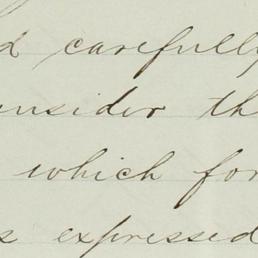 d carefully
nsider th
which for
s expressed